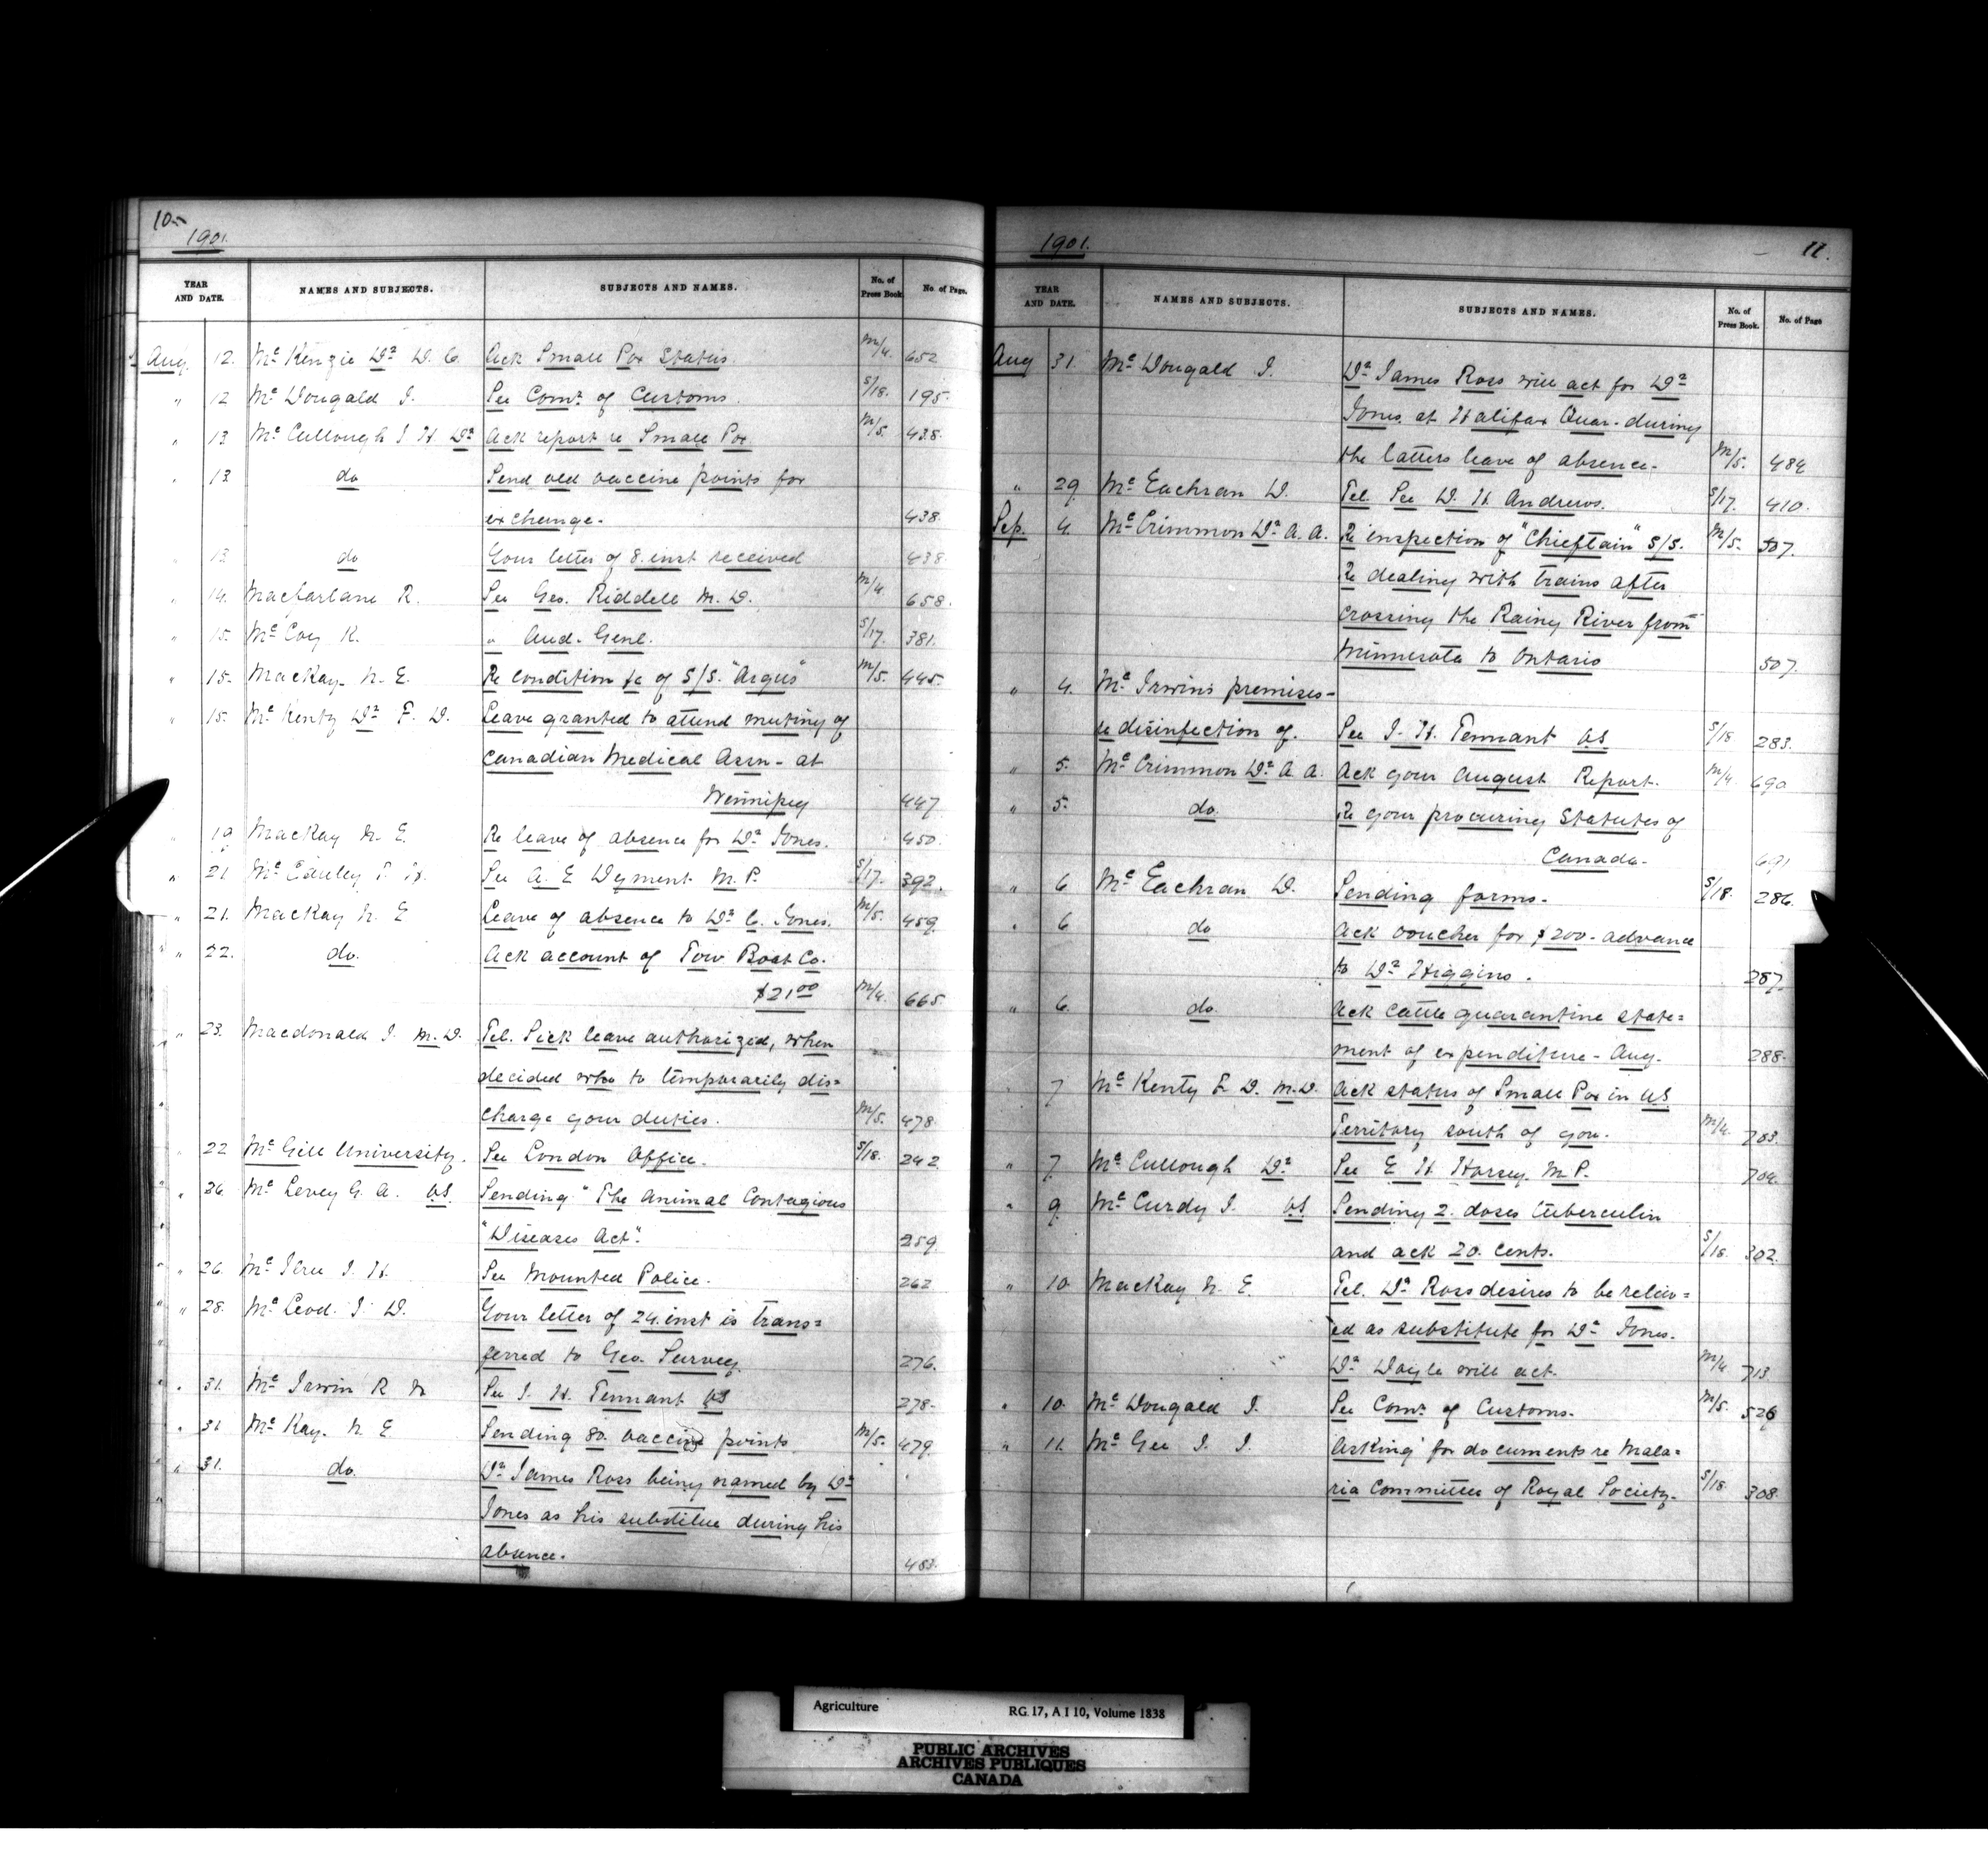 10-
1901.
YEAR AND DATE. NAMES AND SUBJECTS. SUBJECTS AND NAMES. No. of Press Book No. of Page.
Aug. 12. McKenzie Dr D. C. Ack Small Pox Status. M/4. 652
" 12 McDougald J. See Comr of Customs. S/18. 195.
" 13 McCullough J. H. Dr Ack report re Small Pox M/5. 438.
" 13 do Send old vaccine points for
exchange. 438.
" 13 do Your letter of 8. inst received 438
" 14. Macfarlane R. See Geo. Riddell M.D. M/4 658.
" 15. McCoy K. " Aud. Genl. S/17. 381.
" 15. MacKay N. E. Re condition &c of S/S. "Argus" M/5. 445.
" 15. McKenty Dr F. D. Leave granted to attend meeting of
Canadian Medical Assn - at
Winnipeg 447
" 19 MacKay N. E. Re leave of absence for Dr Jones. 450.
" 21 See A. E Dyment M.P. S/17. 392.
" 21. MacKay N. E Leave of absence to Dr C. Jones. M/5. 459
" 22. do. Ack account of Tow Boat Co.
$21 00 M/4. 665
" 23. Macdonald J. M.D. Tel. Sick leave authorized, when
decided who to temporarily dis=
charge your duties. M/5. 478.
" 22 McGill University. See London Office. S/18. 242.
" 26. McLevey G. A. VS. Sending "The Animal Contagious
"Diseases Act". 259
" 26. J. H. See Mounted Police. 262
" 28. McLeod. J. D. Your letter of 24. inst is trans=
ferred to Geo. Survey. 276.
" 31. McIrwin R N See J. H. Tennant VS 278.
" 31 McKay. N E Sending 80. vaccine points M/5. 479.
" 31. do. Dr James Ross being named by Dr
Jones as his substitue during his
absence. 483.
1901. 11.
YEAR AND DATE. NAMES AND SUBJECTS. SUBJECTS AND NAMES. No. of Press Book. No. of Page
Aug 31. McDougald J. Dr James Ross will act for Dr
Jones. at Halifax Quar. during
the latters leave of absence. M/5. 484
" 29. McEachran D. Tel. See D. H. Andrews. S/17. 410.
Sep. 4. McCrimmon Dr A. A. Re inspection of "Chieftain" S/S. M/5. 507.
Re dealing with trains after
crossing the Rainy River from
Minnesota to Ontario 507.
" 4. McIrwin's premises-
re disinfection of. See J. H. Tennant VS S/18 283.
" 5. McCrimmon Dr A A. Ack your August Report. M/4. 690
" 5. do. Re your procuring Statutes of
Canada. 691
" 6 McEachran D. Sending forms. S/18. 286.
" 6 do Ack voucher for $200- advance
to Dr Higgins. 287.
" 6. do. Ack cattle quarantine state=
ment of expenditure - Aug. 288.
" 7 McKenty F. D. M.D. Ack status of Small Pox in US
Territory south of you. M/4. 703.
" 7. McCullough Dr See E H Horsey. M.P. 704.
" 9. McCurdy J. VS Sending 2. doses tuberculin
and ack 20. cents. S/18. 302.
" 10 MacKay N. E. Tel. Dr Ross desires to be reliev=
ed as substitute for Dr Jones.
Dr Doyle will act. M/4 713
" 10. McDougald J. See Comr of Customs. M/5. 526
" 11. McGee J. J. Asking for documents re Mala=
ria Committee of Royal Society. S/18 308.
Agriculture RG 17, A I 10, Volume 1838
PUBLIC ARCHIVES
ARCHIVES PUBLIQUES
CANADA